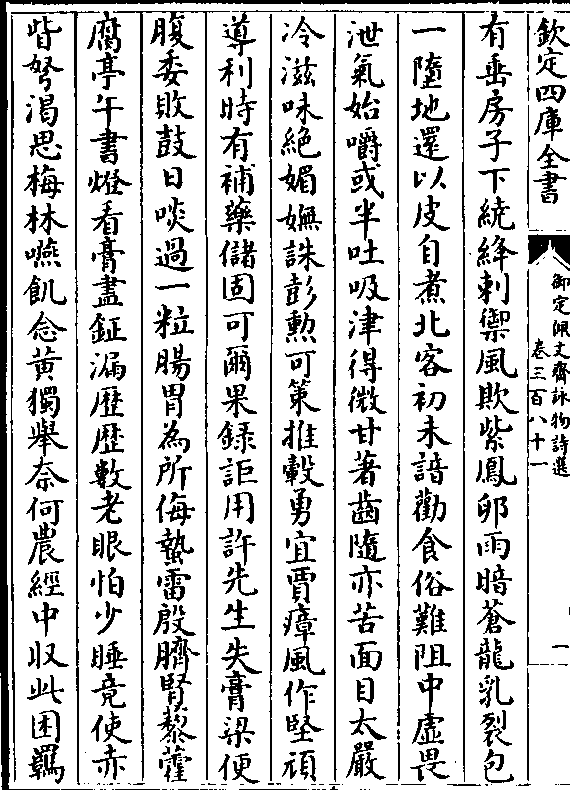 欽定四庫全書
御定佩文齋詠物詩選
卷三百八十一
一
有垂房子下繞絳刺禦風欺紫鳳卵雨暗蒼龍乳裂包
一墮地還以皮自煮北客初未諳勸食俗難阻中虛畏
泄氣始嚼或半吐吸津得微甘著齒隨亦苦面目太嚴
冷滋味絶媚嫵誅彭勲可策推轂勇宜賈瘴風作堅頑
導利時有補藥儲固可爾果録詎用許先生失膏粱便
腹委敗鼓日啖過一粒腸胃為所侮蟄雷殷臍腎藜藿
腐亭午書燈看膏盡鉦漏歴歴數老眼怕少睡竟使赤
眥努渴思梅林嚥飢念黄獨舉奈何農經中収此困羈